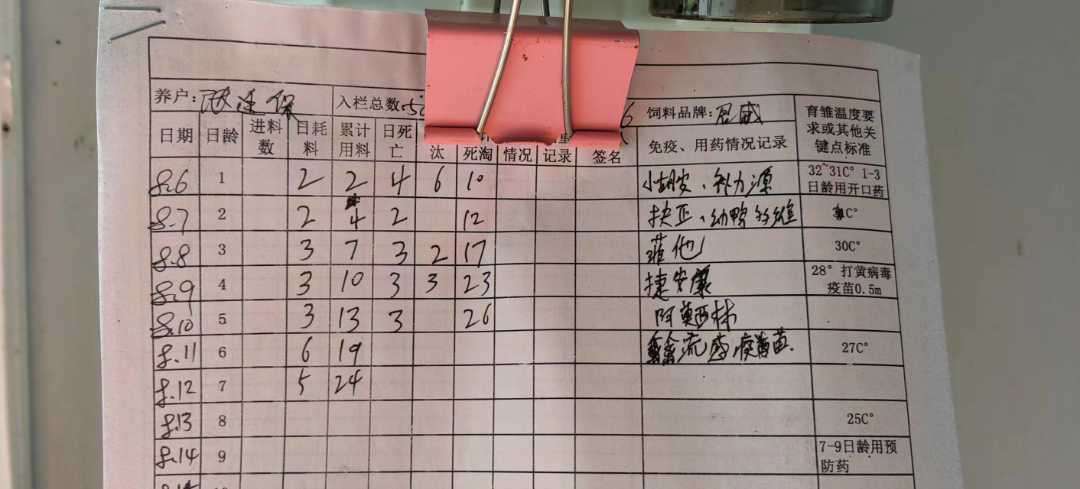 养户: 入栏总数: 6 饲料品牌:
日期 日龄 进料数 日耗料 累计用料 日死亡 汰 死淘 情况 记录 签名 免疫、用药情况记录 育雏温度要求或其他关键点标准
8.6 1 2 2 4 6 10 32~31C° 1-3日龄用开口药
8.7 2 2 4 2 12 C°
8.8 3 3 7 3 2 17 30C°
8.9 4 3 10 3 3 23 捷安康 28° 打黄病毒疫苗0.5m
8.10 5 3 13 3 26 阿莫西林
8.11 6 6 19 禽流感疫苗. 27C°
8.12 7 5 24
8.13 8 25C°
8.14 9 7-9日龄用预防药